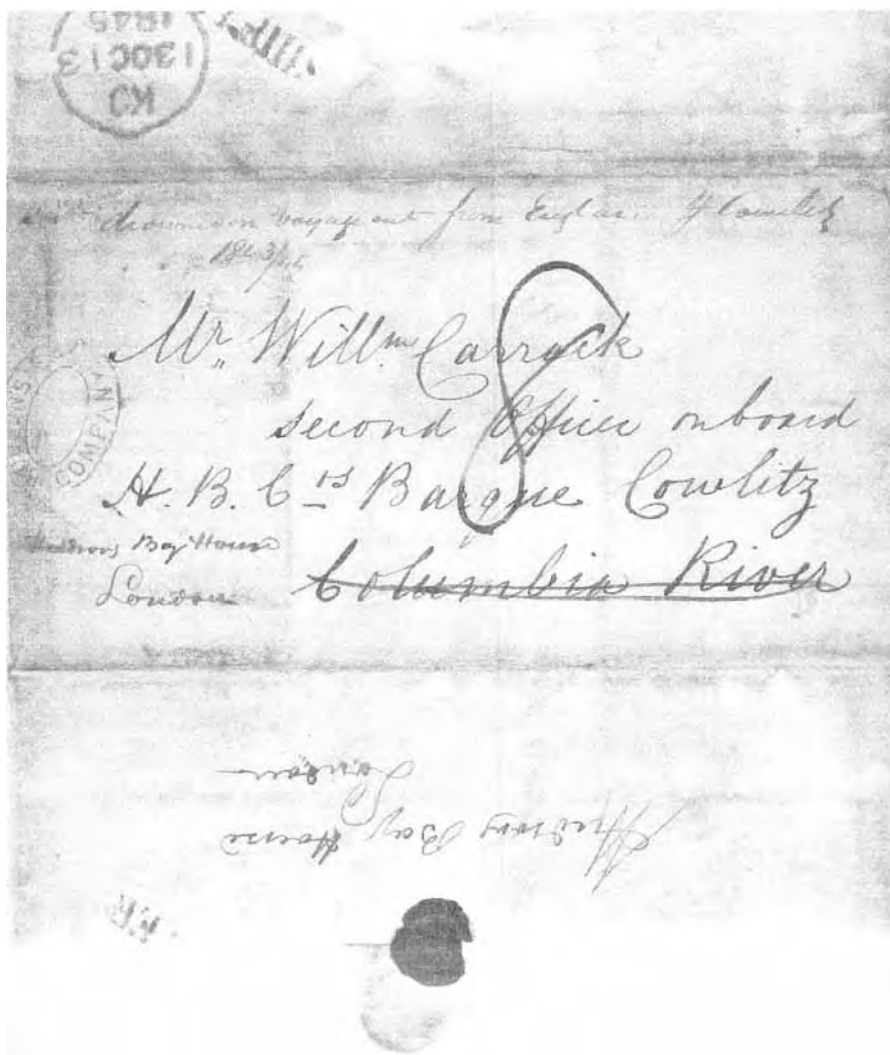 KO
13OC13
1845
drowned on voyage out from England Cowlitz
1843/44
8
Mr. Willm Carrack
second Officer onboard
H. B. Cos Barque Cowlitz
Hudsons Bay House
London
Columbia River
COMPANY
Hudsons Bay House
London